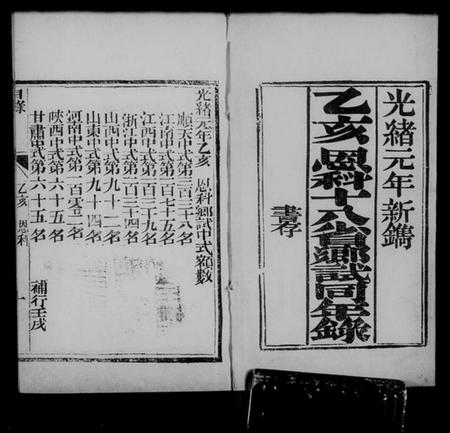 光緒元年新鐫
乙亥恩科十八省鄉試同年錄
書存
光緒元年乙亥 恩科鄉試中式名數
順天中式第三百三十八名
江南中式第一百七十五名
江西中式第一百三十九名
浙江中式第一百三十四名
山西中式第九十一名
山東中式第九十四名
河南中式第一百零二名
陝西中式第六十五名
甘肅中式第六十五名
補行壬戌
目錄
乙亥 恩科
一